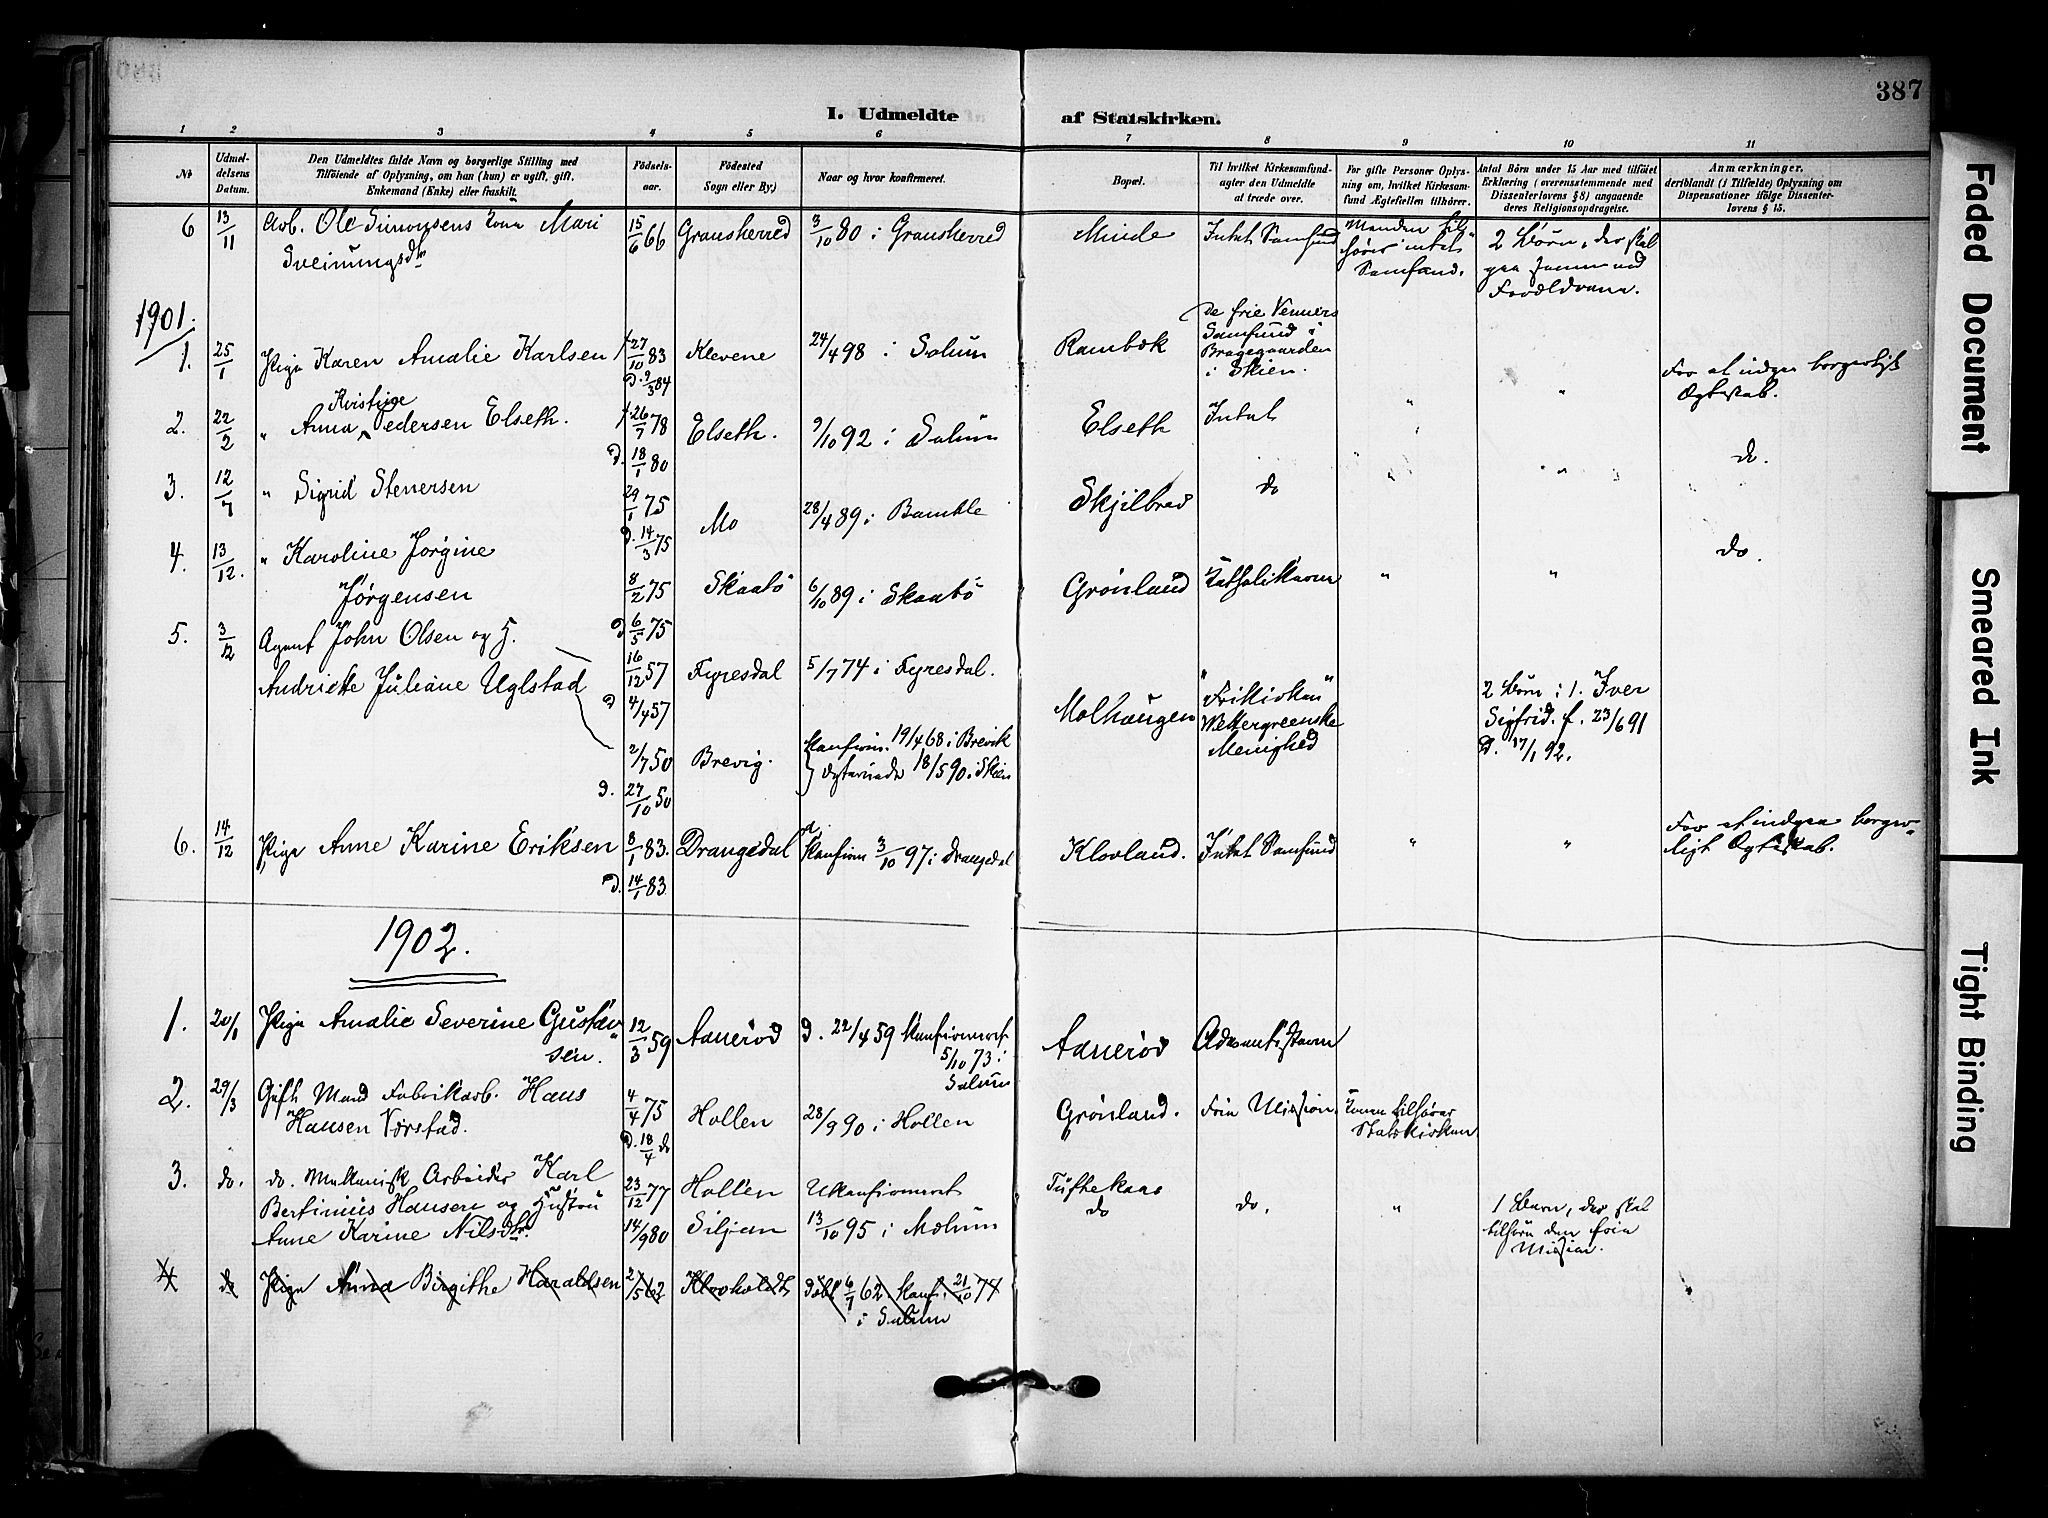 387
I. Udmeldte af Statskirken.
1 2 3 4 5 6 7 8 9 10 11
№
Udmeldelsens Datum.
Den Udmeldtes fulde Navn og borgerlige Stilling med
Tilföiende af Oplysning, om han (hun) er ugift, gift,
Enkemand (Enke) eller fraskilt.
Födselsaar.
Födested
Sogn eller By.)
Naar og hvor konfirmeret.
Bopæl.
Til hvilket Kirkesamfund-
agter den Udmeldte
at træde over.
For gifte Personer Oplys-
ning om, hvilket Kirkesam-
fund Ægtefællen tilhörer.
Antal Börn under 15 Aar med tilföiet
Erklæring (overensstemmende med
Dissenterlovens § 8) angaaende
deres Religionsopdragelse.
Anmærkninger.
deriblandt (i Tilfælde) Oplysning om
Dispensationer ifölge Dissenter-
lovens § 15.
6 13/11 Arb. Ole Simonsens Kone Mari 15/6 66 Gransherred 3/10 80 i Gransherred Minde Intet Samfund Manden til- 2 Børn, der skal
Sveinungsdtr hører intet
Samfund. Forældrene.
1901.
De frie Venners
Samfund i
1. 25/1 Pige Karen Amalie Karlsen f. 27/10 83 Klevene 24/4 98 i Solum Rambæk Bragegaarden For at indgaa borgerligt
D. 9/3 84 i Skien. Ægteskab.
Kristine
2. 22/2 " Anna Pedersen Elseth. f. 26/7 78 Elseth. 9/10 92 i Solum Elseth Intet " " do.
D. 18/1 80
3. 12/7 " Sigrid Stenersen 29/1 75 Mo 28/4 89 i Bamble Skjilbred do " " do.
D. 14/3 75
4. 13/12. " Karoline Jørgine
Jørgensen 8/2 75 Skaatø 6/10 89 i Skaatø Grønland " "
D 6/5 75
5. 3/12 Agent John Olsen og H.
Andriette Juliane Uglstad 16/12 57 Fyresdal 5/7 74 i Fyresdal. Molhaugen "Frikirken" 2 Børn: 1. Iver
D 4/4 57 Wettergreenske Sigfrid. f. 23/6 91
Menighed D. 17/1 92.
2/7 50 Brevig. Konfirm. 19/4 68 i Brevik
18/5 90 i Skien
D. 27/10 50
6. 14/12 Pige Anne Karine Eriksen 8/1 83. Drangedal Konfirm 3/10 97 i Drangedal Klovland. Intet Samfund " " For at indgaa borger-
D. 14/1 83. ligt Ægteskab.
1902.
1. 20/1 Pige Amalie Severine Gustav- 12/3 59 Aanerød D. 22/4 59 Konfirmeret Aanerød
sen. 5/10 73 i
Solum
2. 29/3 Gift Mand Fabrikarb. Hans 4/4 75 Hollen 28/9 90 i Hollen Grønland. Frie Mission. Konen tilhører
Hansen Værstad. D. 18/4 do Statskirken
3. do. do. Mekanisk Arbeider Karl 23/12 77 Hollen Ukonfirmeret Tuftekaas
Bertinius Hansen og Hustru do do. " 1 Barn, der skal
Anne Karine Nilsdtr. 14/9 80 Siljan 13/10 95 i Mælum tilhøre den frie
Mission.
4 do Pige Anna Birgithe Haraldsen 2/5 62 Klovholdt Døbt 6/7 62 Konf. 21/10 77
i Solum
Faded Document
Smeared Ink
Tight Binding